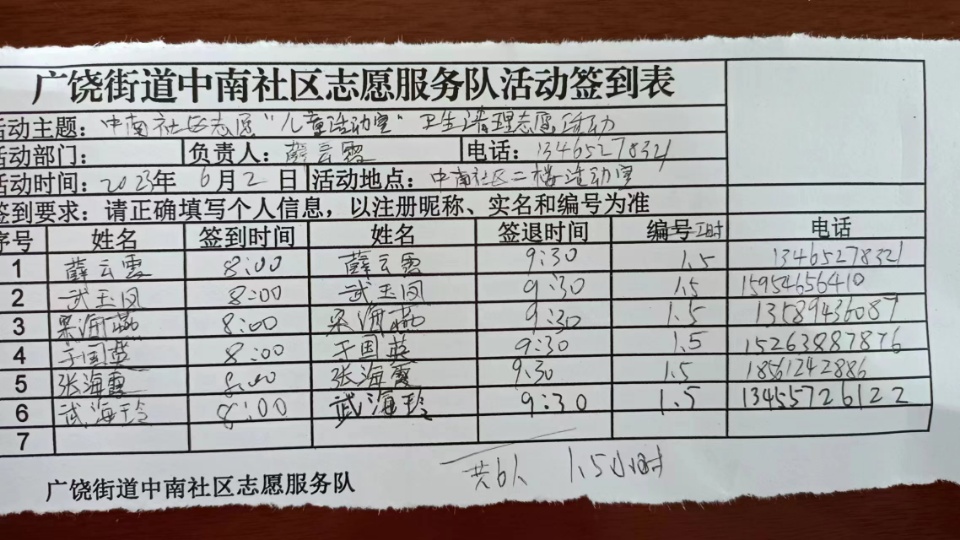 广饶街道中南社区志愿服务队活动签到表
活动主题：中南社区志愿“儿童活动室”卫生清理志愿活动
活动部门： 负责人：薛云霞 电话：13465278321
活动时间：2023年 6月2日 活动地点：中南社区二楼活动室
签到要求：请正确填写个人信息，以注册昵称、实名和编号为准
序号 姓名 签到时间 姓名 签退时间 编号 工时 电话
1 薛云霞 8:00 薛云霞 9:30 1.5 13465278321
2 武玉凤 8:00 武玉凤 9:30 1.5 15954656410
3 梁海燕 8:00 梁海燕 9:30 1.5 13589436087
4 于国英 8:00 于国英 9:30 1.5 15263887876
5 张海霞 8:00 张海霞 9:30 1.5 18561242886
6 武海玲 8:00 武海玲 9:30 1.5 13455726122
7
共6人 1.5小时
广饶街道中南社区志愿服务队